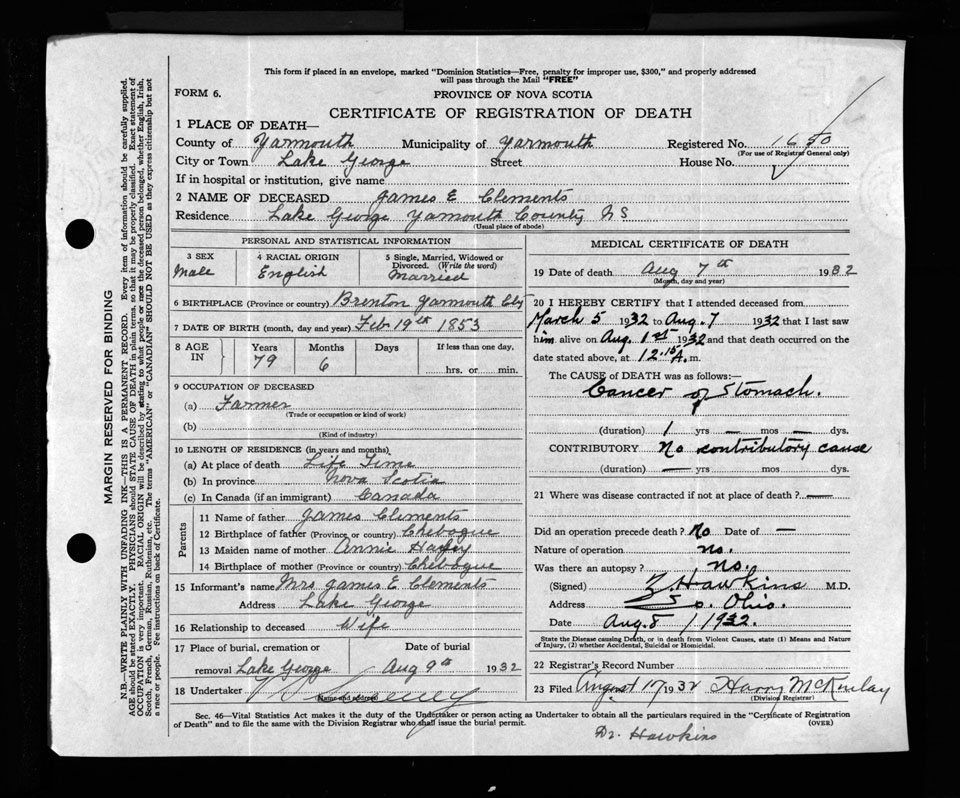 This form if placed in an envelope, marked "Dominion Statistics—Free, penalty for improper use, $300," and properly addressed
will pass through the Mail "FREE"
FORM 6.
PROVINCE OF NOVA SCOTIA
CERTIFICATE OF REGISTRATION OF DEATH
1 PLACE OF DEATH—
County of Yarmouth Municipality of Yarmouth Registered No.
(For use of Registrar General only)
City or Town Lake George Street House No.
If in hospital or institution, give name
2 NAME OF DECEASED James E Clements
Residence Lake George Yarmouth County N S
(Usual place of abode)
PERSONAL AND STATISTICAL INFORMATION
3 SEX 4 RACIAL ORIGIN 5 Single, Married, Widowed or
Divorced. (Write the word)
Male English Married
6 BIRTHPLACE (Province or country) Brenton Yarmouth Cty
7 DATE OF BIRTH (month, day and year) Feb 19th 1853
8 AGE IN Years Months Days If less than one day,
79 6
hrs. or min.
9 OCCUPATION OF DECEASED
(a) Farmer
(Trade or occupation or kind of work)
(b)
(Kind of industry)
10 LENGTH OF RESIDENCE (in years and months)
(a) At place of death Life Time
(b) In province Nova Scotia
(c) In Canada (if an immigrant) Canada
Parents
11 Name of father James Clements
12 Birthplace of father (Province or country) Chebogue
13 Maiden name of mother Annie
14 Birthplace of mother (Province or country) Chebogue
15 Informant's name Mrs James E Clements
Address Lake George
16 Relationship to deceased Wife
17 Place of burial, cremation or Date of burial
removal Lake George Aug 9th 1932
18 Undertaker
(Name and address)
MEDICAL CERTIFICATE OF DEATH
19 Date of death Aug 7th 1932
(Month, day and year)
20 I HEREBY CERTIFY that I attended deceased from
March 5 1932 to Aug. 7 1932 that I last saw
him alive on Aug. 1st 1932 and that death occurred on the
date stated above, at 12.15 A. m.
The CAUSE of DEATH was as follows:—
Cancer of Stomach.
(duration) 1 yrs — mos — dys.
CONTRIBUTORY No contributory cause
(duration) — yrs mos dys.
21 Where was disease contracted if not at place of death? —
Did an operation precede death? No Date of —
Nature of operation no.
Was there an autopsy? no.
(Signed) Z. Hawkins M.D.
Address So. Ohio.
Date Aug. 8 / 1932.
State the Disease causing Death, or in death from Violent Causes, state (1) Means and Nature
of Injury, (2) whether Accidental, Suicidal or Homicidal.
22 Registrar's Record Number
23 Filed August 17 1932 Harry McKinlay
(Division Registrar)
Sec. 46—Vital Statistics Act makes it the duty of the Undertaker or person acting as Undertaker to obtain all the particulars required in the "Certificate of Registration
of Death" and to file the same with the Division Registrar who shall issue the burial permit.
(OVER)
Dr. Hawkins
MARGIN RESERVED FOR BINDING
N.B.—WRITE PLAINLY WITH UNFADING INK—THIS IS A PERMANENT RECORD. Every item of information should be carefully supplied.
AGE should be stated EXACTLY. PHYSICIANS should STATE CAUSE OF DEATH in plain terms, so that it may be properly classified. Exact statement of
OCCUPATION is very important. RACIAL ORIGIN will be described by stating to what people or race the deceased person belonged, whether English, Irish,
Scotch, French, German, Russian, Ruthenian, etc. The terms "AMERICAN" or "CANADIAN" SHOULD NOT BE USED as they express citizenship but not
a race or people. Fee instructions on back of Certificate.